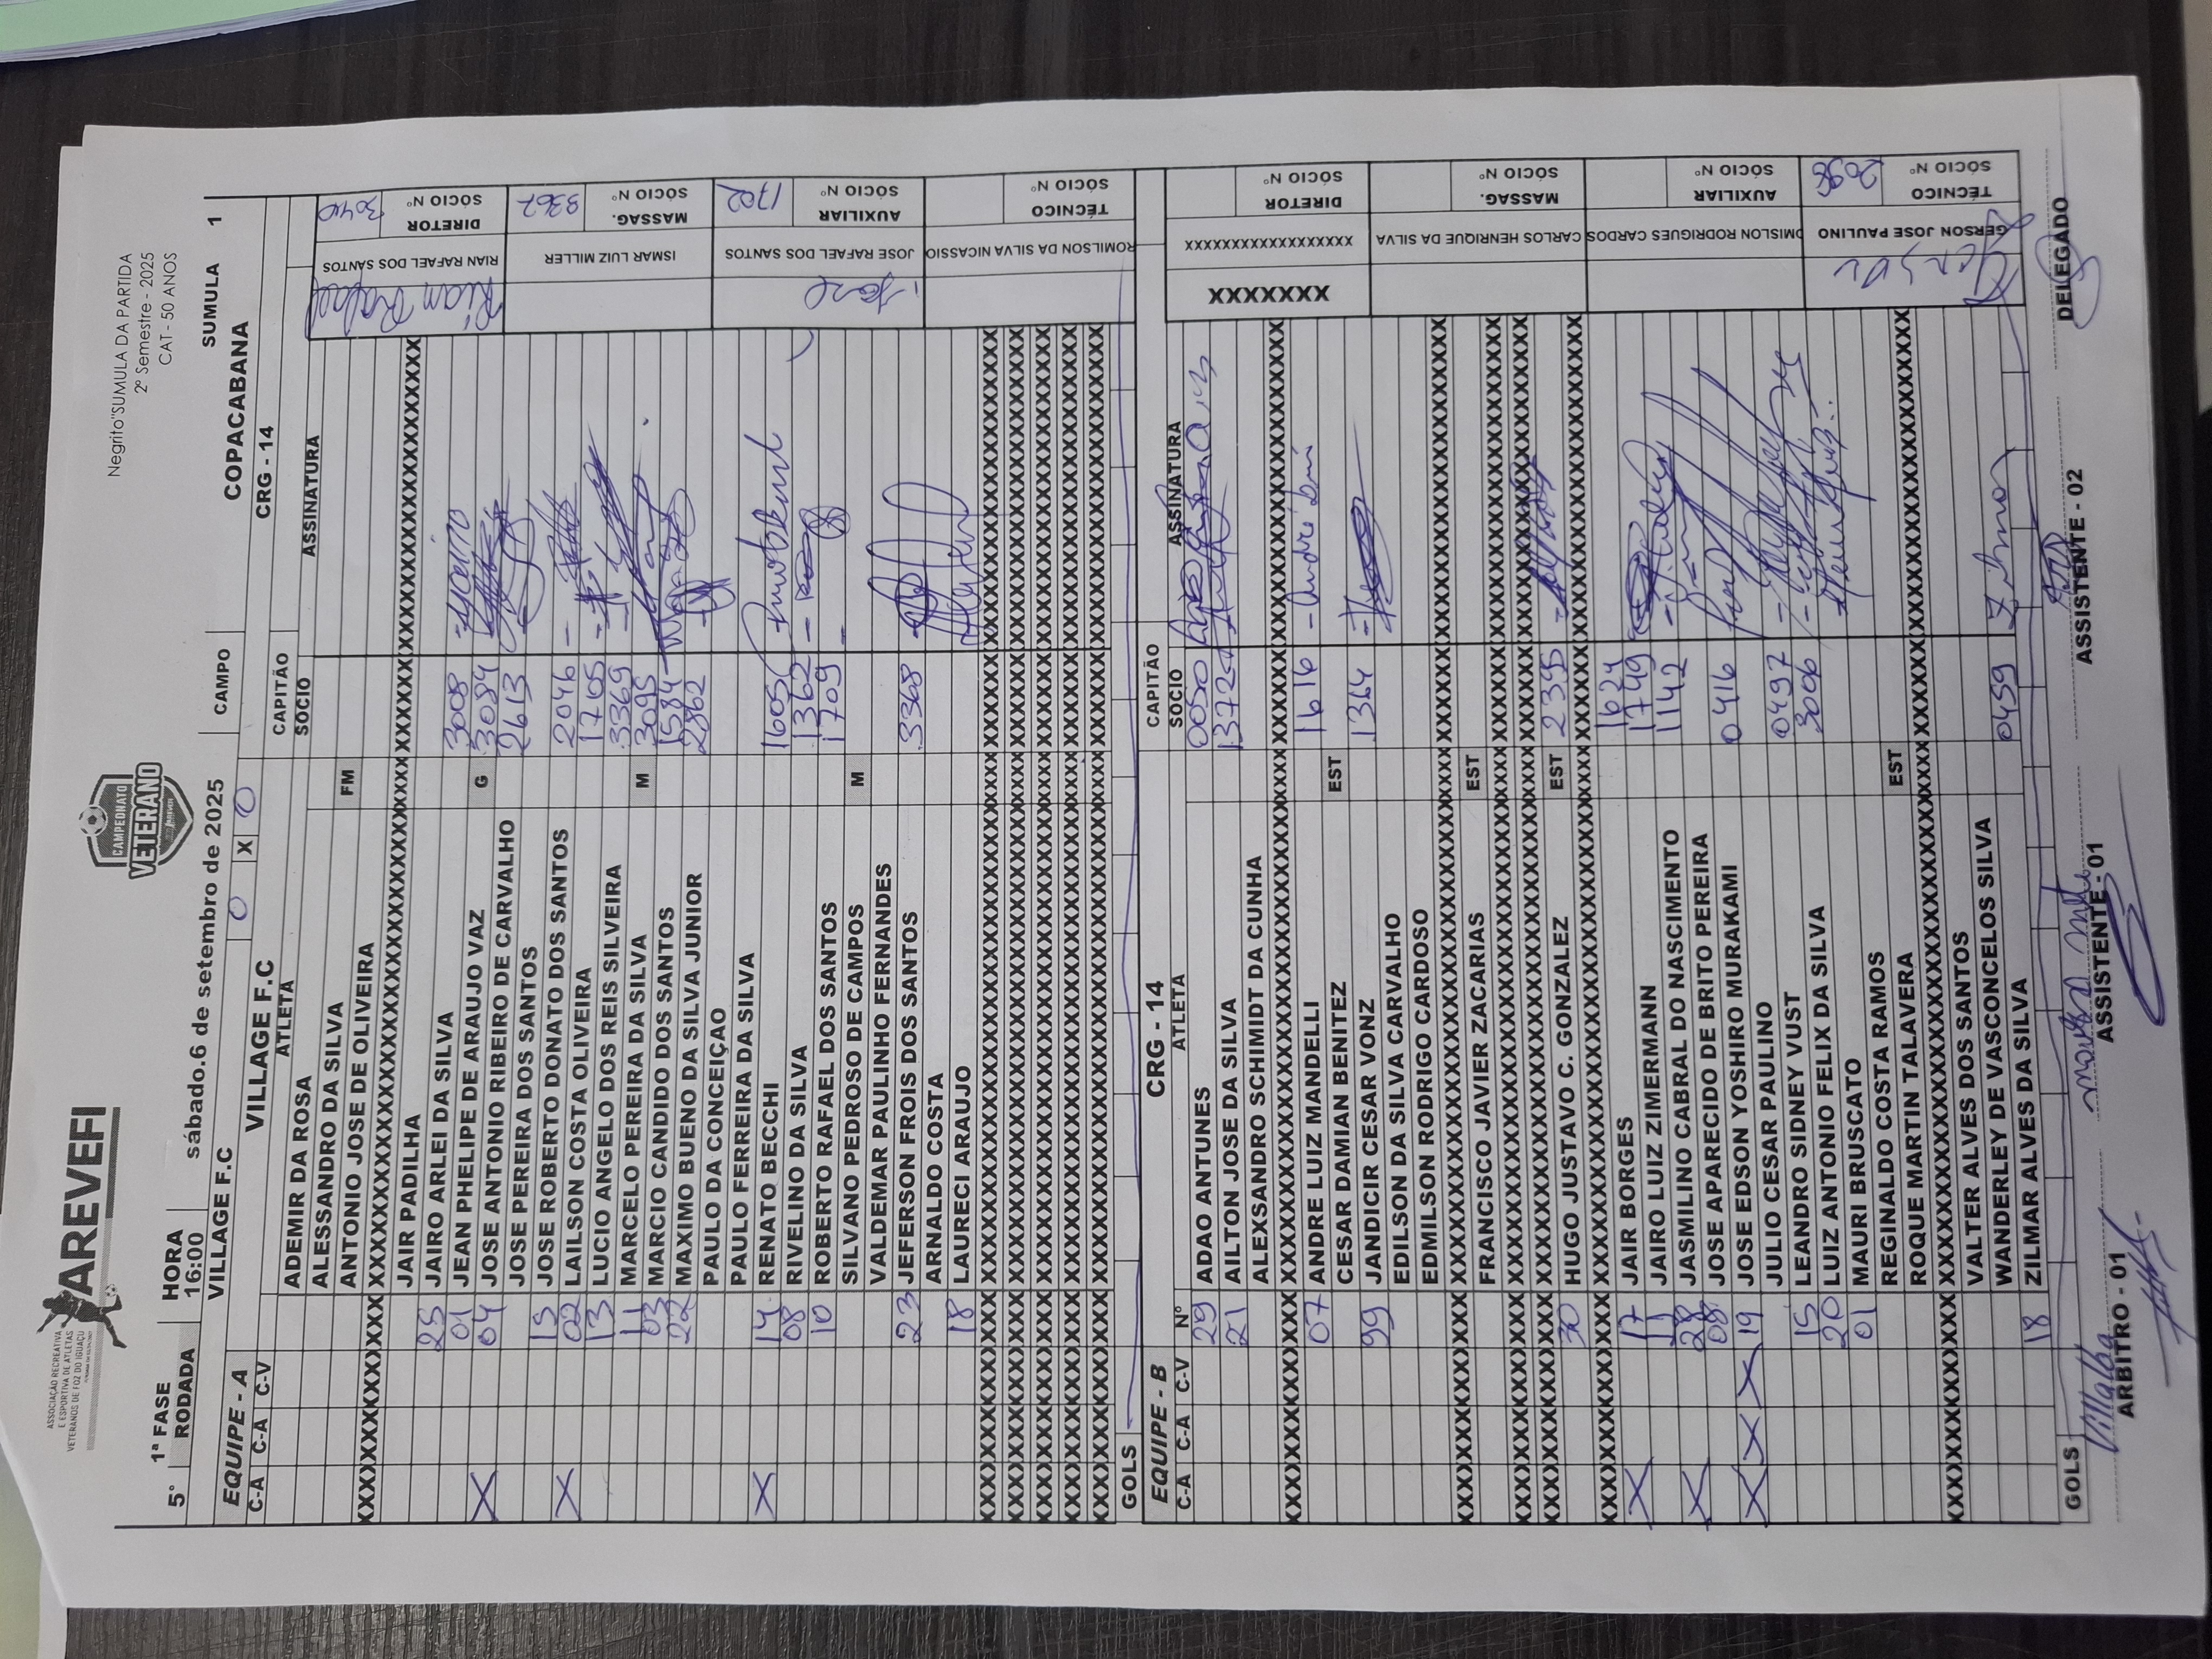 ASSOCIAÇÃO RECREATIVA
E ESPORTIVA DE ATLETAS
VETERANOS DE FOZ DO IGUAÇU
AREVEFI
CAMPEONATO
VETERANO
AREVEFI
Negrito"SUMULA DA PARTIDA
2º Semestre - 2025
CAT - 50 ANOS
5° 1ª FASE HORA
RODADA 16:00 sábado.6 de setembro de 2025 CAMPO COPACABANA SUMULA 1
VILLAGE F.C 0 X 0 CRG - 14
EQUIPE - A VILLAGE F.C CAPITÃO
C-A C-A C-V ATLETA SOCIO ASSINATURA
ADEMIR DA ROSA
ALESSANDRO DA SILVA
ANTONIO JOSE DE OLIVEIRA FM
JAIR PADILHA
25 JAIRO ARLEI DA SILVA 3008
01 JEAN PHELIPE DE ARAUJO VAZ G 3084
X 04 JOSE ANTONIO RIBEIRO DE CARVALHO 2613
JOSE PEREIRA DOS SANTOS
15 JOSE ROBERTO DONATO DOS SANTOS 2046
X 02 LAILSON COSTA OLIVEIRA 1705
13 LUCIO ANGELO DOS REIS SILVEIRA 3369
11 MARCELO PEREIRA DA SILVA M 3095
03 MARCIO CANDIDO DOS SANTOS 1584
22 MAXIMO BUENO DA SILVA JUNIOR 2862
PAULO DA CONCEIÇAO
PAULO FERREIRA DA SILVA
X 14 RENATO BECCHI 1605
08 RIVELINO DA SILVA 1362
10 ROBERTO RAFAEL DOS SANTOS 1709
SILVANO PEDROSO DE CAMPOS M
VALDEMAR PAULINHO FERNANDES
23 JEFERSON FROIS DOS SANTOS 3368
ARNALDO COSTA
18 LAURECI ARAUJO
GOLS
Rian Rafael RIAN RAFAEL DOS SANTOS DIRETOR SÓCIO Nº 3040
ISMAR LUIZ MILLER MASSAG. SÓCIO Nº 3367
Jose JOSE RAFAEL DOS SANTOS AUXILIAR SÓCIO Nº 1702
ROMILSON DA SILVA NICASSIO TÉCNICO SÓCIO Nº
EQUIPE - B CRG - 14 CAPITÃO
C-A C-A C-V Nº ATLETA SOCIO ASSINATURA
29 ADAO ANTUNES 0050
21 AILTON JOSE DA SILVA 1372
ALEXSANDRO SCHIMIDT DA CUNHA
07 ANDRE LUIZ MANDELLI 1616
CESAR DAMIAN BENITEZ EST
99 JANDICIR CESAR VONZ 1364
EDILSON DA SILVA CARVALHO
EDMILSON RODRIGO CARDOSO
FRANCISCO JAVIER ZACARIAS EST
30 HUGO JUSTAVO C. GONZALEZ EST 2395
X 17 JAIR BORGES 1624
11 JAIRO LUIZ ZIMERMANN 1749
X 28 JASMILINO CABRAL DO NASCIMENTO 1142
08 JOSE APARECIDO DE BRITO PEREIRA
X X X 19 JOSE EDSON YOSHIRO MURAKAMI 0416
JULIO CESAR PAULINO
15 LEANDRO SIDNEY VUST 0497
20 LUIZ ANTONIO FELIX DA SILVA 3006
01 MAURI BRUSCATO
REGINALDO COSTA RAMOS
ROQUE MARTIN TALAVERA EST
VALTER ALVES DOS SANTOS
WANDERLEY DE VASCONCELOS SILVA
18 ZILMAR ALVES DA SILVA 0459 Zilmar
GOLS
XXXXXXX XXXXXXXXXXXXXXXXX DIRETOR SÓCIO Nº
CARLOS HENRIQUE DA SILVA MASSAG. SÓCIO Nº
OMISLON RODRIGUES CARDOS AUXILIAR SÓCIO Nº
Gerson GERSON JOSE PAULINO TÉCNICO SÓCIO Nº 2096
Villalba
ARBITRO - 01 ASSISTENTE - 01 ASSISTENTE - 02 DELEGADO